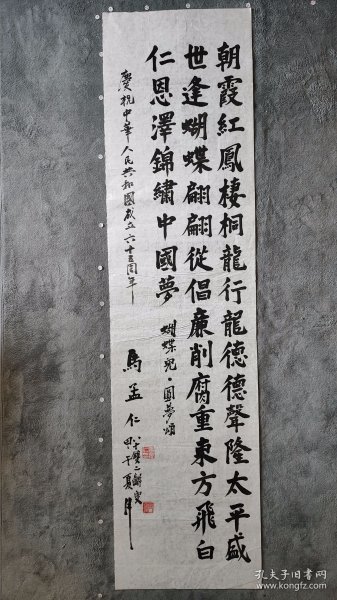 朝霞紅鳳棲桐龍行龍德德聲隆太平盛
世逢蝴蝶翩翩從倡廉削腐重東方飛白
仁恩澤錦繡中國夢
蝴蝶兒·圓夢頌
慶祝中華人民共和國成立六十五周年
馬孟仁
甲午夏月
孔夫子旧书网